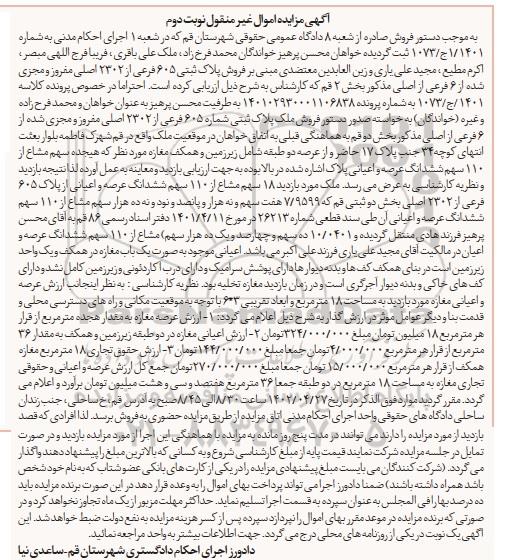 آگهی مزایده اموال غیر منقول نوبت دوم
به موجب دستور فروش صادره از شعبه ۸ دادگاه عمومی حقوقی شهرستان قم که در شعبه ۱ اجرای احکام مدنی به شماره
۱/۱۴۰۱ج/۱۰۷۳ ثبت گردیده خواهان محسن پرهیز خواندگان محمد فرخ زاد، ملک علی باقری، فریبا فرج اللهی مبصر،
اکرم مطیع، مجید علی یاری و زین العابدین معتضدی مبنی بر فروش پلاک ثبتی ۶۰۵ فرعی از ۲۳۰۲ اصلی مفروز و مجزی
شده از ۶ فرعی از اصلی مذکور بخش ۲ قم که کارشناس به شرح ذیل ارزیابی کرده است. احتراما در خصوص پرونده کلاسه
۱/۱۴۰۱ج/۱۰۷۳ به شماره پرونده ۱۴۰۱۰۲۹۳۰۰۰۱۱۰۶۸۳۸ به طرفیت محسن پرهیز به عنوان خواهان و محمد فرخ زاده
و غیره (خواندگان) به خواسته صدور دستور فروش ملک پلاک ثبتی شماره ۶۰۵ فرعی از ۲۳۰۲ اصلی مفروز و مجزی شده از
۶ فرعی از اصلی مذکور بخش دو قم به هماهنگی قبلی به اتفاق خواهان در موقعیت ملک واقع در قم شهرک فاطمیه بلوار بعثت
انتهای کوچه ۳۴ جنب پلاک ۱۷ حاضر و از عرصه دو طبقه شامل زیرزمین و همکف مغازه مورد نظر که هیجده سهم مشاع از
۱۱۰ سهم ششدانگ عرصه و اعیانی پلاک اشاره شده در بالا بوده به جهت ارزیابی بازدید و معاینه به عمل آورده لذا نتیجه بازدید
و نظریه کارشناسی به عرض می رسد. ملک مورد بازدید ۱۸ سهم مشاع از ۱۱۰ سهم ششدانگ عرصه و اعیانی از پلاک ۶۰۵
فرعی از ۲۳۰۲ اصلی بخش دو ثبتی قم که ۷/۹۵۹۹ هفت سهم و نه هزار و پانصد و نود و نه ده هزار سهم مشاع از ۱۱۰ سهم
ششدانگ عرصه و اعیانی آن طی سند قطعی شماره ۲۶۲۱۳ در مورخ ۱۴۰۱/۴/۱۱ دفتر اسناد رسمی ۸۶ قم به آقای محسن
پرهیز فرزند هادی منتقل گردیده و ۱۰/۰۴۰۱ ده سهم و چهارصد و یک ده هزار سهم) مشاع از ۱۱۰ سهم ششدانگ عرصه و
اعیان در مالکیت آقای مجید علی یاری فرزند علی اکبر می باشد. اعیانی موجود به صورت یک باب مغازه در همکف و یک واحد
زیرزمین است در بنای همکف کف ها و بدنه دیوارها دارای پوشش سرامیک و دارای درب آکاردئونی و زیرزمین کامل نشد و دارای
کف های خاکی و بدنه دیوار آجرگری است و در زمان بازدید مغازه تخلیه بود. نظریه کارشناسی: به نظر اینجانب ارزش عرصه
و اعیانی مغازه مورد بازدید به مساحت ۱۸ مترمربع و ابعاد تقریبی ۳*۶ با توجه به موقعیت مکانی و راه های دسترسی محلی و
قدمت بنا و دیگر عوامل موثر در ارزش گذار به شرح ذیل اعلام می گردد: ۱- ارزش عرصه مغازه به مقدار هجده مترمربع از قرار
هر مترمربع ۱۸ میلیون تومان مبلغ ۳۲۴/۰۰۰/۰۰۰ تومان ۲- ارزش اعیانی مغازه در دو طبقه زیرزمین و همکف به مقدار ۳۶
مترمربع از قرار هر مترمربع ۴/۰۰۰/۰۰۰ تومان جمعا مبلغ ۱۴۴/۰۰۰/۰۰۰ تومان ۳- ارزش حقوق تجاری ۱۸ مترمربع مغازه
همکف از قرار هر مترمربع ۱۵/۰۰۰/۰۰۰ تومان جمعا مبلغ ۲۷۰/۰۰۰/۰۰۰ تومان جمع کل ارزش عرصه و اعیانی و حقوقی
تجاری مغازه به مساحت ۱۸ مترمربع در دو طبقه جمعا ۳۶ مترمربع هفتصد و سی و هشت میلیون تومان برآورد و اعلام می
گردد. مقرر گردید موارد فوق الذکر در تاریخ ۱۴۰۲/۰۴/۲۷ ساعت ۸/۳۰ الی ۸/۴۵ صبح به آدرس قم، خ ساحلی، جنب زندان
ساحلی دادگاه های حقوقی واحد اجرای احکام مدنی اتاق مزایده از طریق مزایده حضوری به فروش برسد. لذا افرادی که قصد
بازدید از مورد مزایده را دارند می توانند در مدت پنج روز مانده به مزایده با هماهنگی این اجرا از مورد مزایده بازدید و در صورت
تمایل در جلسه مزایده شرکت نمایند قیمت پایه از مبلغ کارشناسی شروع و به کسانی که بالاترین مبلغ را پیشنهاد دهند واگذار
می گردد. (شرکت کنندگان می بایست مبلغ پیشنهادی مزایده را در یکی از کارت های بانکی عضو شتاب که به نام خود شخص
باشد همراه داشته باشند) ضمنا دادورز اجرا می تواند پرداخت بهای اموال را به وعده قرار دهد در این صورت برنده مزایده باید
ده درصد بها را فی المجلس به عنوان سپرده به قسمت اجرا تسلیم نماید. حداکثر مهلت مزبور از یک ماه تجاوز نخواهد کرد و در
صورتی که برنده مزایده در موعد مقرر بهای اموال را نپردازد سپرده پس از کسر هزینه مزایده به نفع دولت ضبط خواهد شد. این
آگهی یک نوبت در یکی از روزنامه های محلی درج می گردد. جهت اطلاعات بیشتر به واحد مراجعه نمائید.
دادورز اجرای احکام دادگستری شهرستان قم - ساعدی نیا